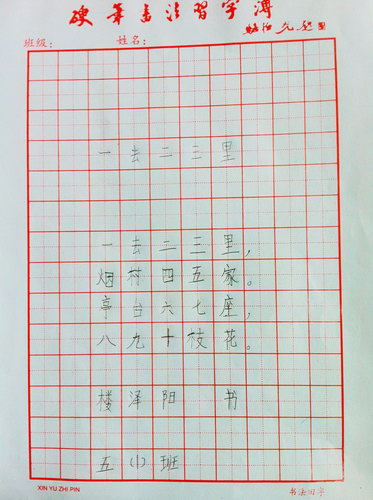 硬笔书法习字簿
班级： 姓名：
一去二三里
一去二三里，
烟村四五家。
亭台六七座，
八九十枝花。
楼泽阳 书
五(1)班
XIN YU ZHI PIN
书法田字